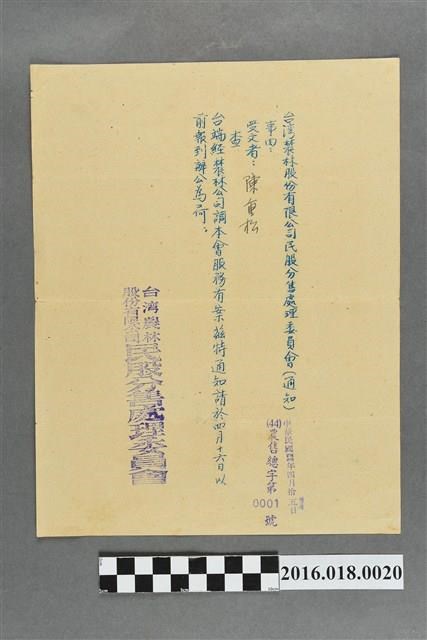 台湾農林股份有限公司民股分售處理委員會(通知)
中華民國44年四月拾五日
(44)農售總字第0001號
事由:
受文者:陳重松
查
台端經農林公司調本會服務有案茲特通知請於四月十六日以
前報到辦公為荷:
台湾農林
股份有限公司
民股分售處理委員會
2016.018.0020